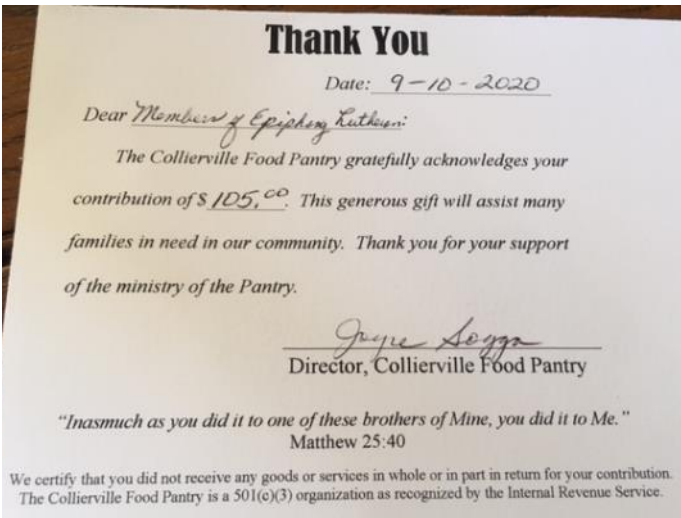 Thank You
Date: 9-10-2020
Dear Members of Epiphany Lutheran:
The Collierville Food Pantry gratefully acknowledges your
contribution of $ 105.00. This generous gift will assist many
families in need in our community. Thank you for your support
of the ministry of the Pantry.
Joyce
Director, Collierville Food Pantry
“Inasmuch as you did it to one of these brothers of Mine, you did it to Me.”
Matthew 25:40
We certify that you did not receive any goods or services in whole or in part in return for your contribution.
The Collierville Food Pantry is a 501(c)(3) organization as recognized by the Internal Revenue Service.